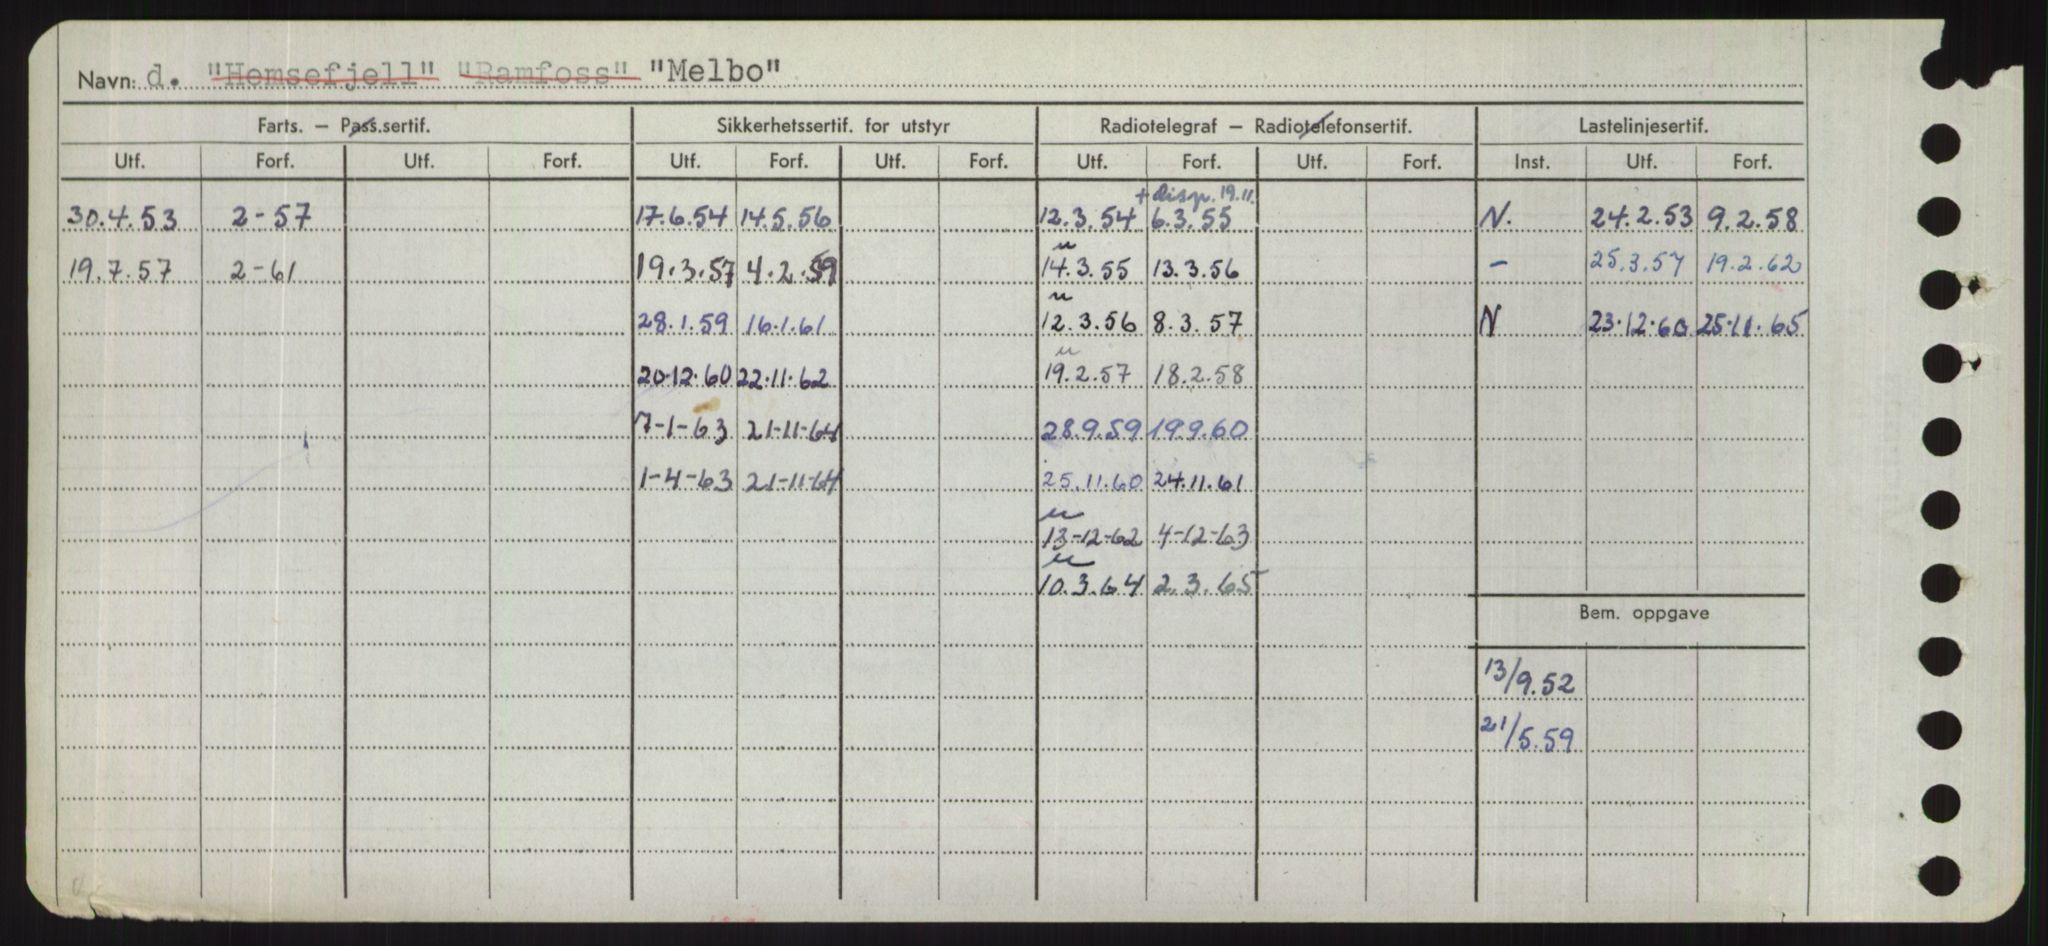 Navn: d. "Hemsefjell" "Ramfoss" "Melbo"
Farts. — Pass.sertif. Sikkerhetssertif. for utstyr Radiotelegraf — Radiotelefonsertif. Lastelinjesertif.
Utf. Forf. Utf. Forf. Utf. Forf. Utf. Forf. Utf. Forf. Utf. Forf. Inst. Utf. Forf.
+ disp. 19.11.
30.4.53 2-57 17.6.54 14.5.56 12.3.54 6.3.55 N. 24.2.53 9.2.58
u
19.7.57 2-61 19.3.57 4.2.59 14.3.55 13.3.56 - 25.3.57 19.2.62
u
28.1.59 16.1.61 12.3.56 8.3.57 N 23.12.60 25.11.65
u
20.12.60 22.11.62 19.2.57 18.2.58
7-1-63 21-11-64 28.9.59 19.9.60
1-4-63 21-11-64 25.11.60 24.11.61
u
13-12-62 4-12-63
u
10.3.64 2.3.65
Bem. oppgave
13/9.52
21/5.59